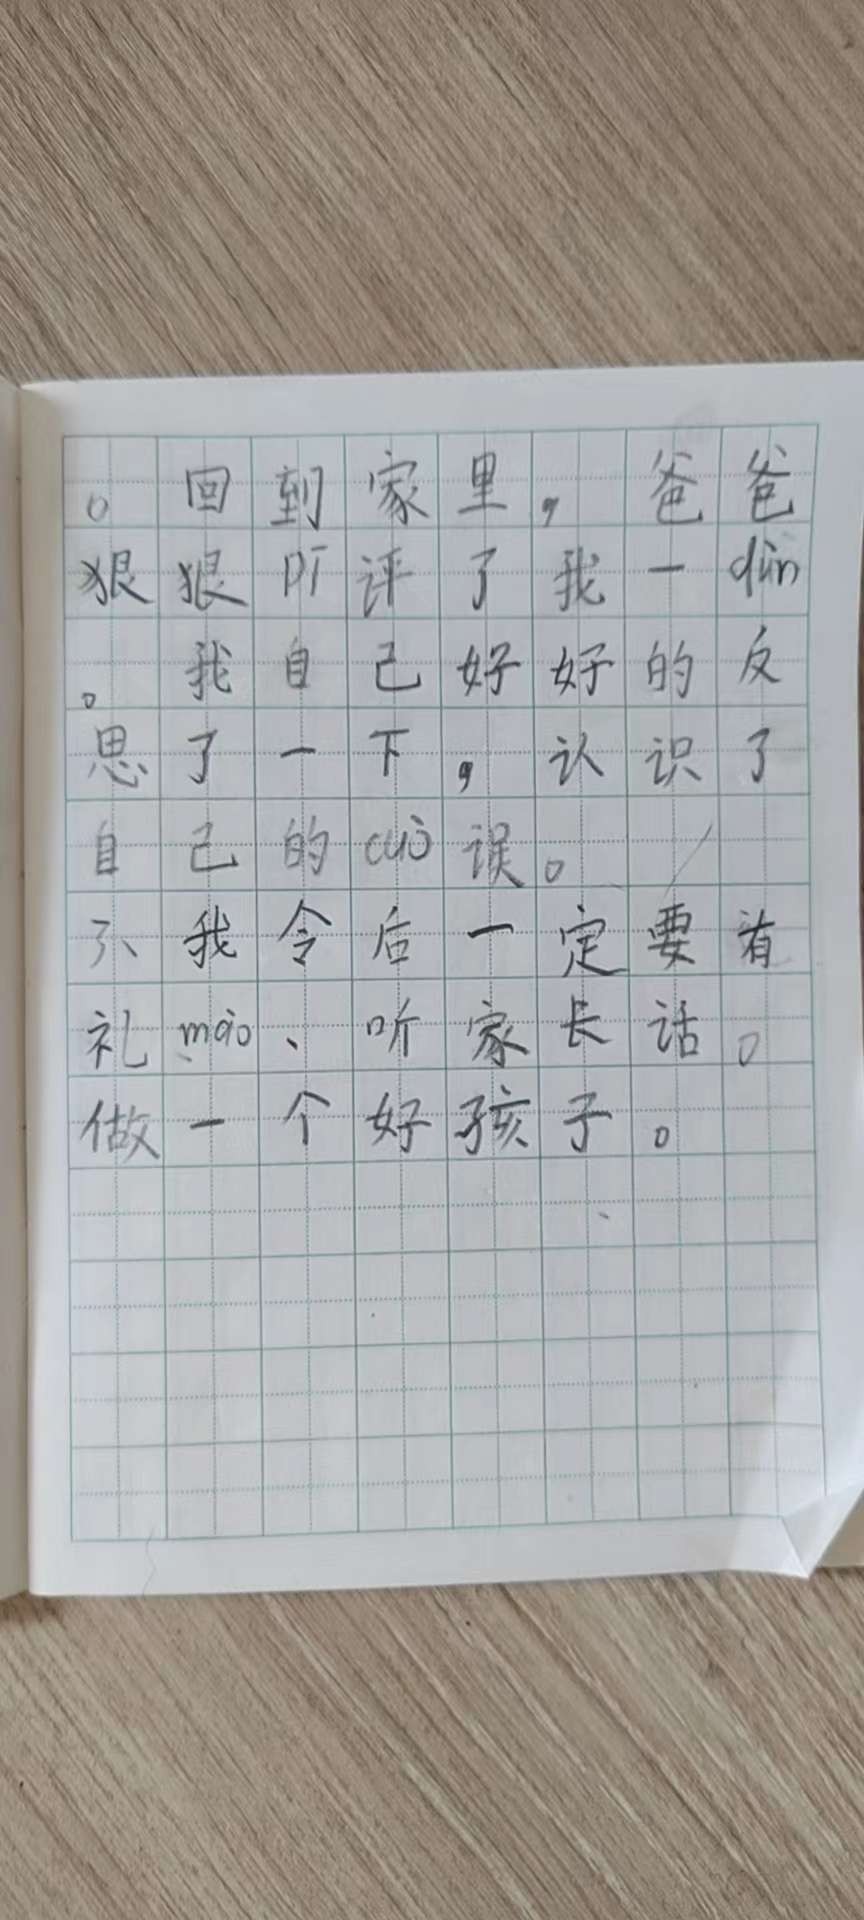 。回到家里，爸爸
狠狠pī评了我一dùn
。我自己好好的反
思了一下，认识了
自己的cuò误。
我令后一定要有
礼mào、听家长话。
做一个好孩子。